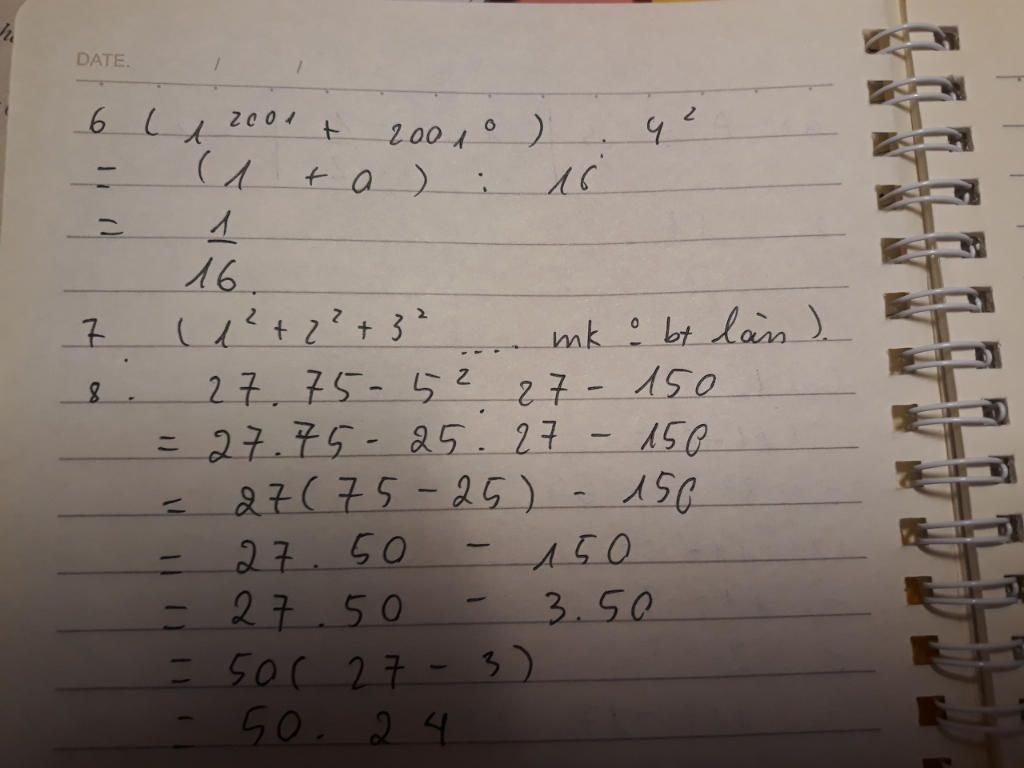 DATE. / /
6 ( 1²⁰⁰¹ + 2001⁰ ) : 4²
= ( 1 + 0 ) : 16
= 1
16.
7. ( 1² + 2² + 3² .... mk : bt làn ).
8. 27.75 - 5².27 - 150
= 27.75 - 25.27 - 150
= 27(75 - 25) - 150
= 27.50 - 150
= 27.50 - 3.50
= 50( 27 - 3)
= 50. 24